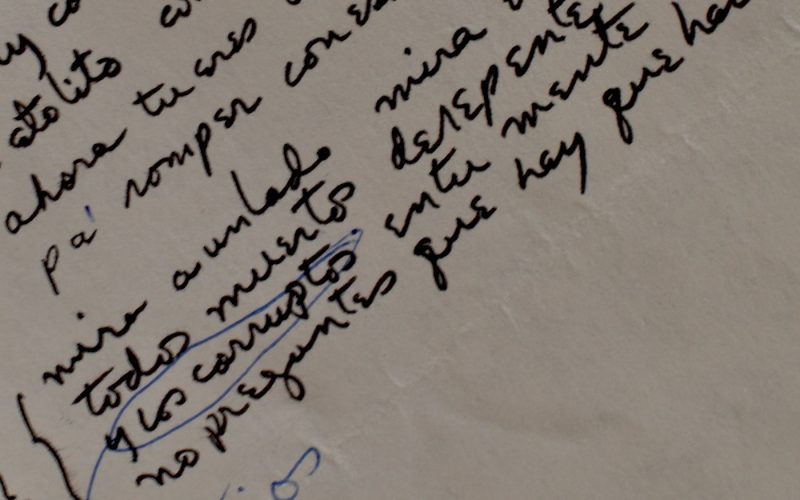 y
atolito
ahora tu eres
pa' romper con
mira a un lado mira
todos muertos derepente
y los corruptos entu mente
no preguntes que hay que